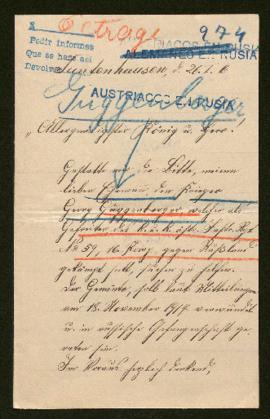 Ostrage
974
Pedir informes
Que se haga así
Devolver
AUSTRIACOS E.. RUSIA
ALEMANES E.. RUSIA
AUSTRIACOS E.. RUSIA
Guggenberger
Allergnädigster König u. Herr!
Gestatte mir die Bitte, meinen
lieben der Krieger
Georg Guggenberger, welcher als
Gefreiter des k. u. k. öst. Inft. Reg.
No 59, 16. Komp. gegen Rußland
gekämpft hat, suchen zu helfen.
Der Gemeinte, soll laut Mitteilungen
am 18. November 1914 verwundet
u. in russische Gefangenschaft ge-
raten sein.
Im Voraus herzlich dankend,